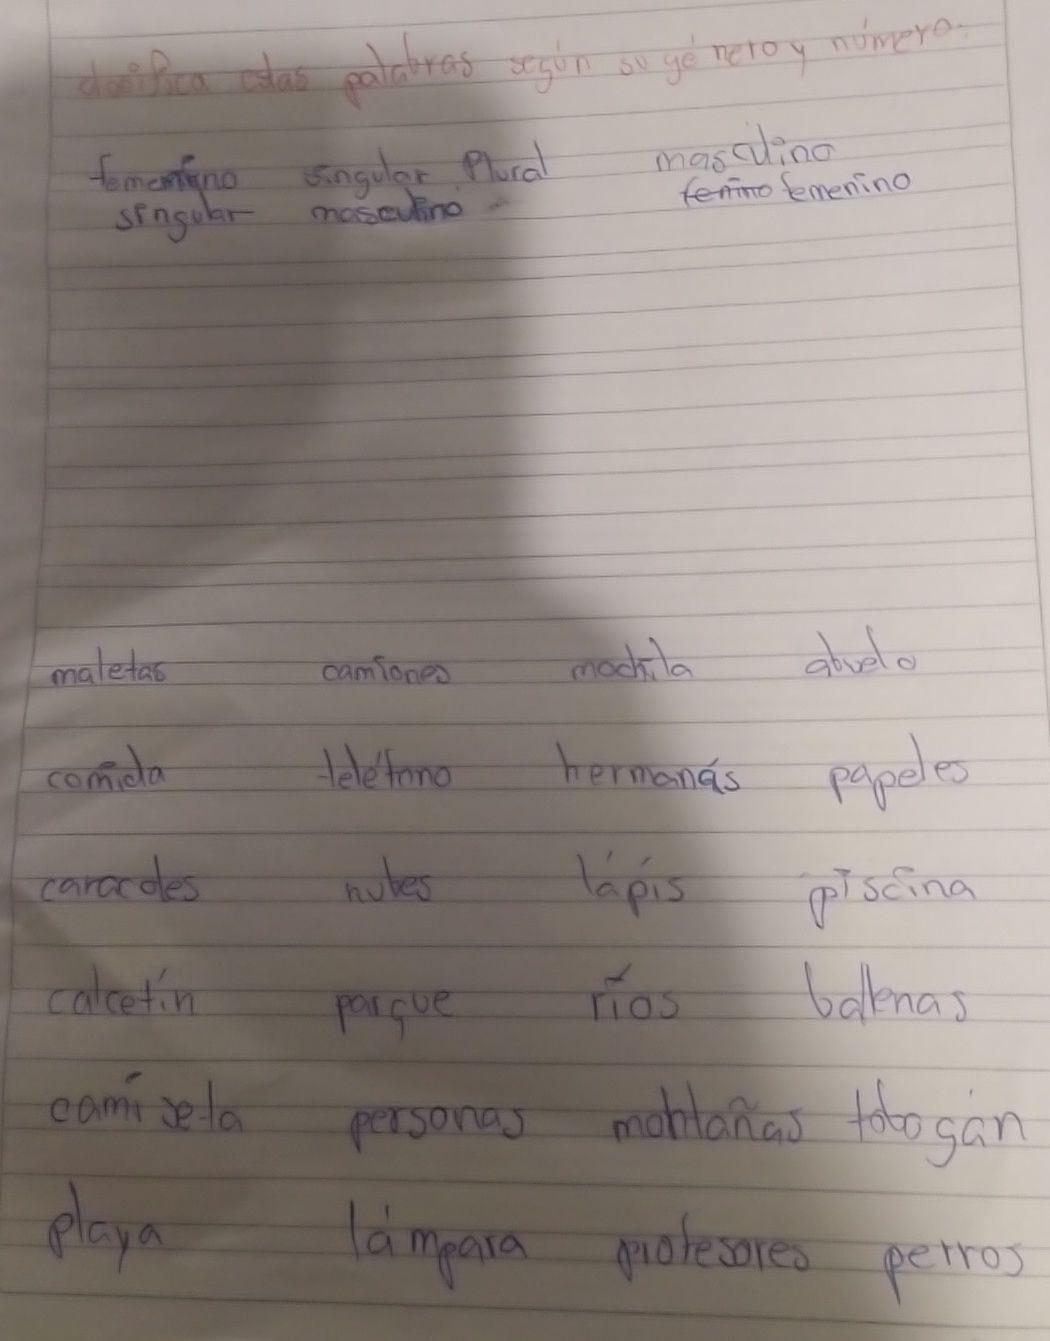 clasifica estas palabras según su género y número.
femenino singular Plural masculino
singular masculino femino femenino
maletas camiones mochila abuelo
comida teléfono hermanás papeles
caracoles nubes lápis piscina
calcetín parque ríos ballenas
camiseta personas montañas tobogán
playa lámpara profesores perros